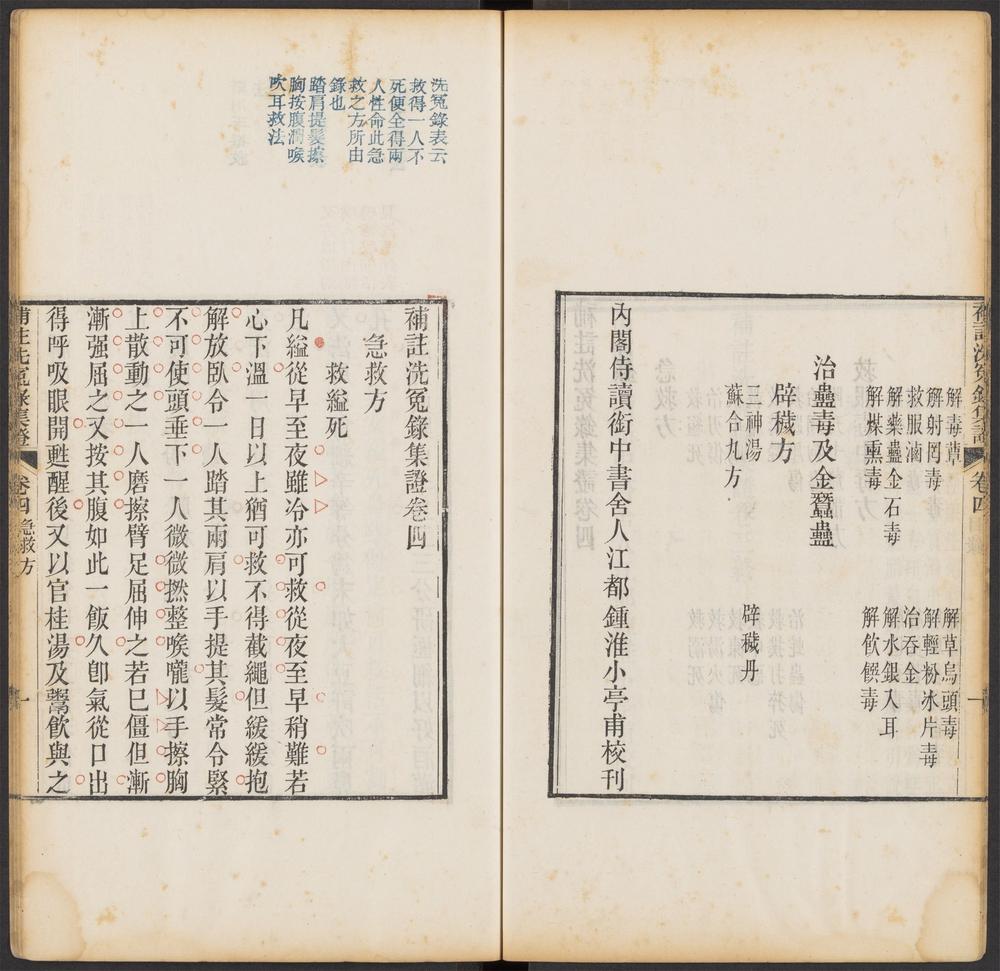 補註洗冤錄集證
卷四
目錄
一
解毒蕈
解草烏頭毒
解射罔毒
解輕粉冰片毒
救服滷
治吞金
解藥蠱金石毒
解水銀入耳
解煤熏毒
解飲饌毒
治蠱毒及金蠶蠱
辟穢方
三神湯
辟穢丹
蘇合九方
內閣侍讀銜中書舍人江都鍾淮小亭甫校刊
洗冤錄表云
救得一人不
死便全得兩
人性命此急
救之方所由
錄也
踏肩提髮擦
胸按腹潤喉
吹耳救法
補註洗冤錄集證卷四
急救方
救縊死
凡縊從早至夜雖冷亦可救從夜至早稍難若
心下溫一日以上猶可救不得截繩但緩緩抱
解放臥令一人踏其兩肩以手提其髮常令緊
不可使頭垂下一人微微撚整喉嚨以手擦胸
上散動之一人磨擦臂足屈伸之若已僵但漸
漸强屈之又按其腹如此一飯久卽氣從口出
得呼吸眼開甦醒後又以官桂湯及粥飲與之
補註洗冤錄集證
卷四
急救方
一